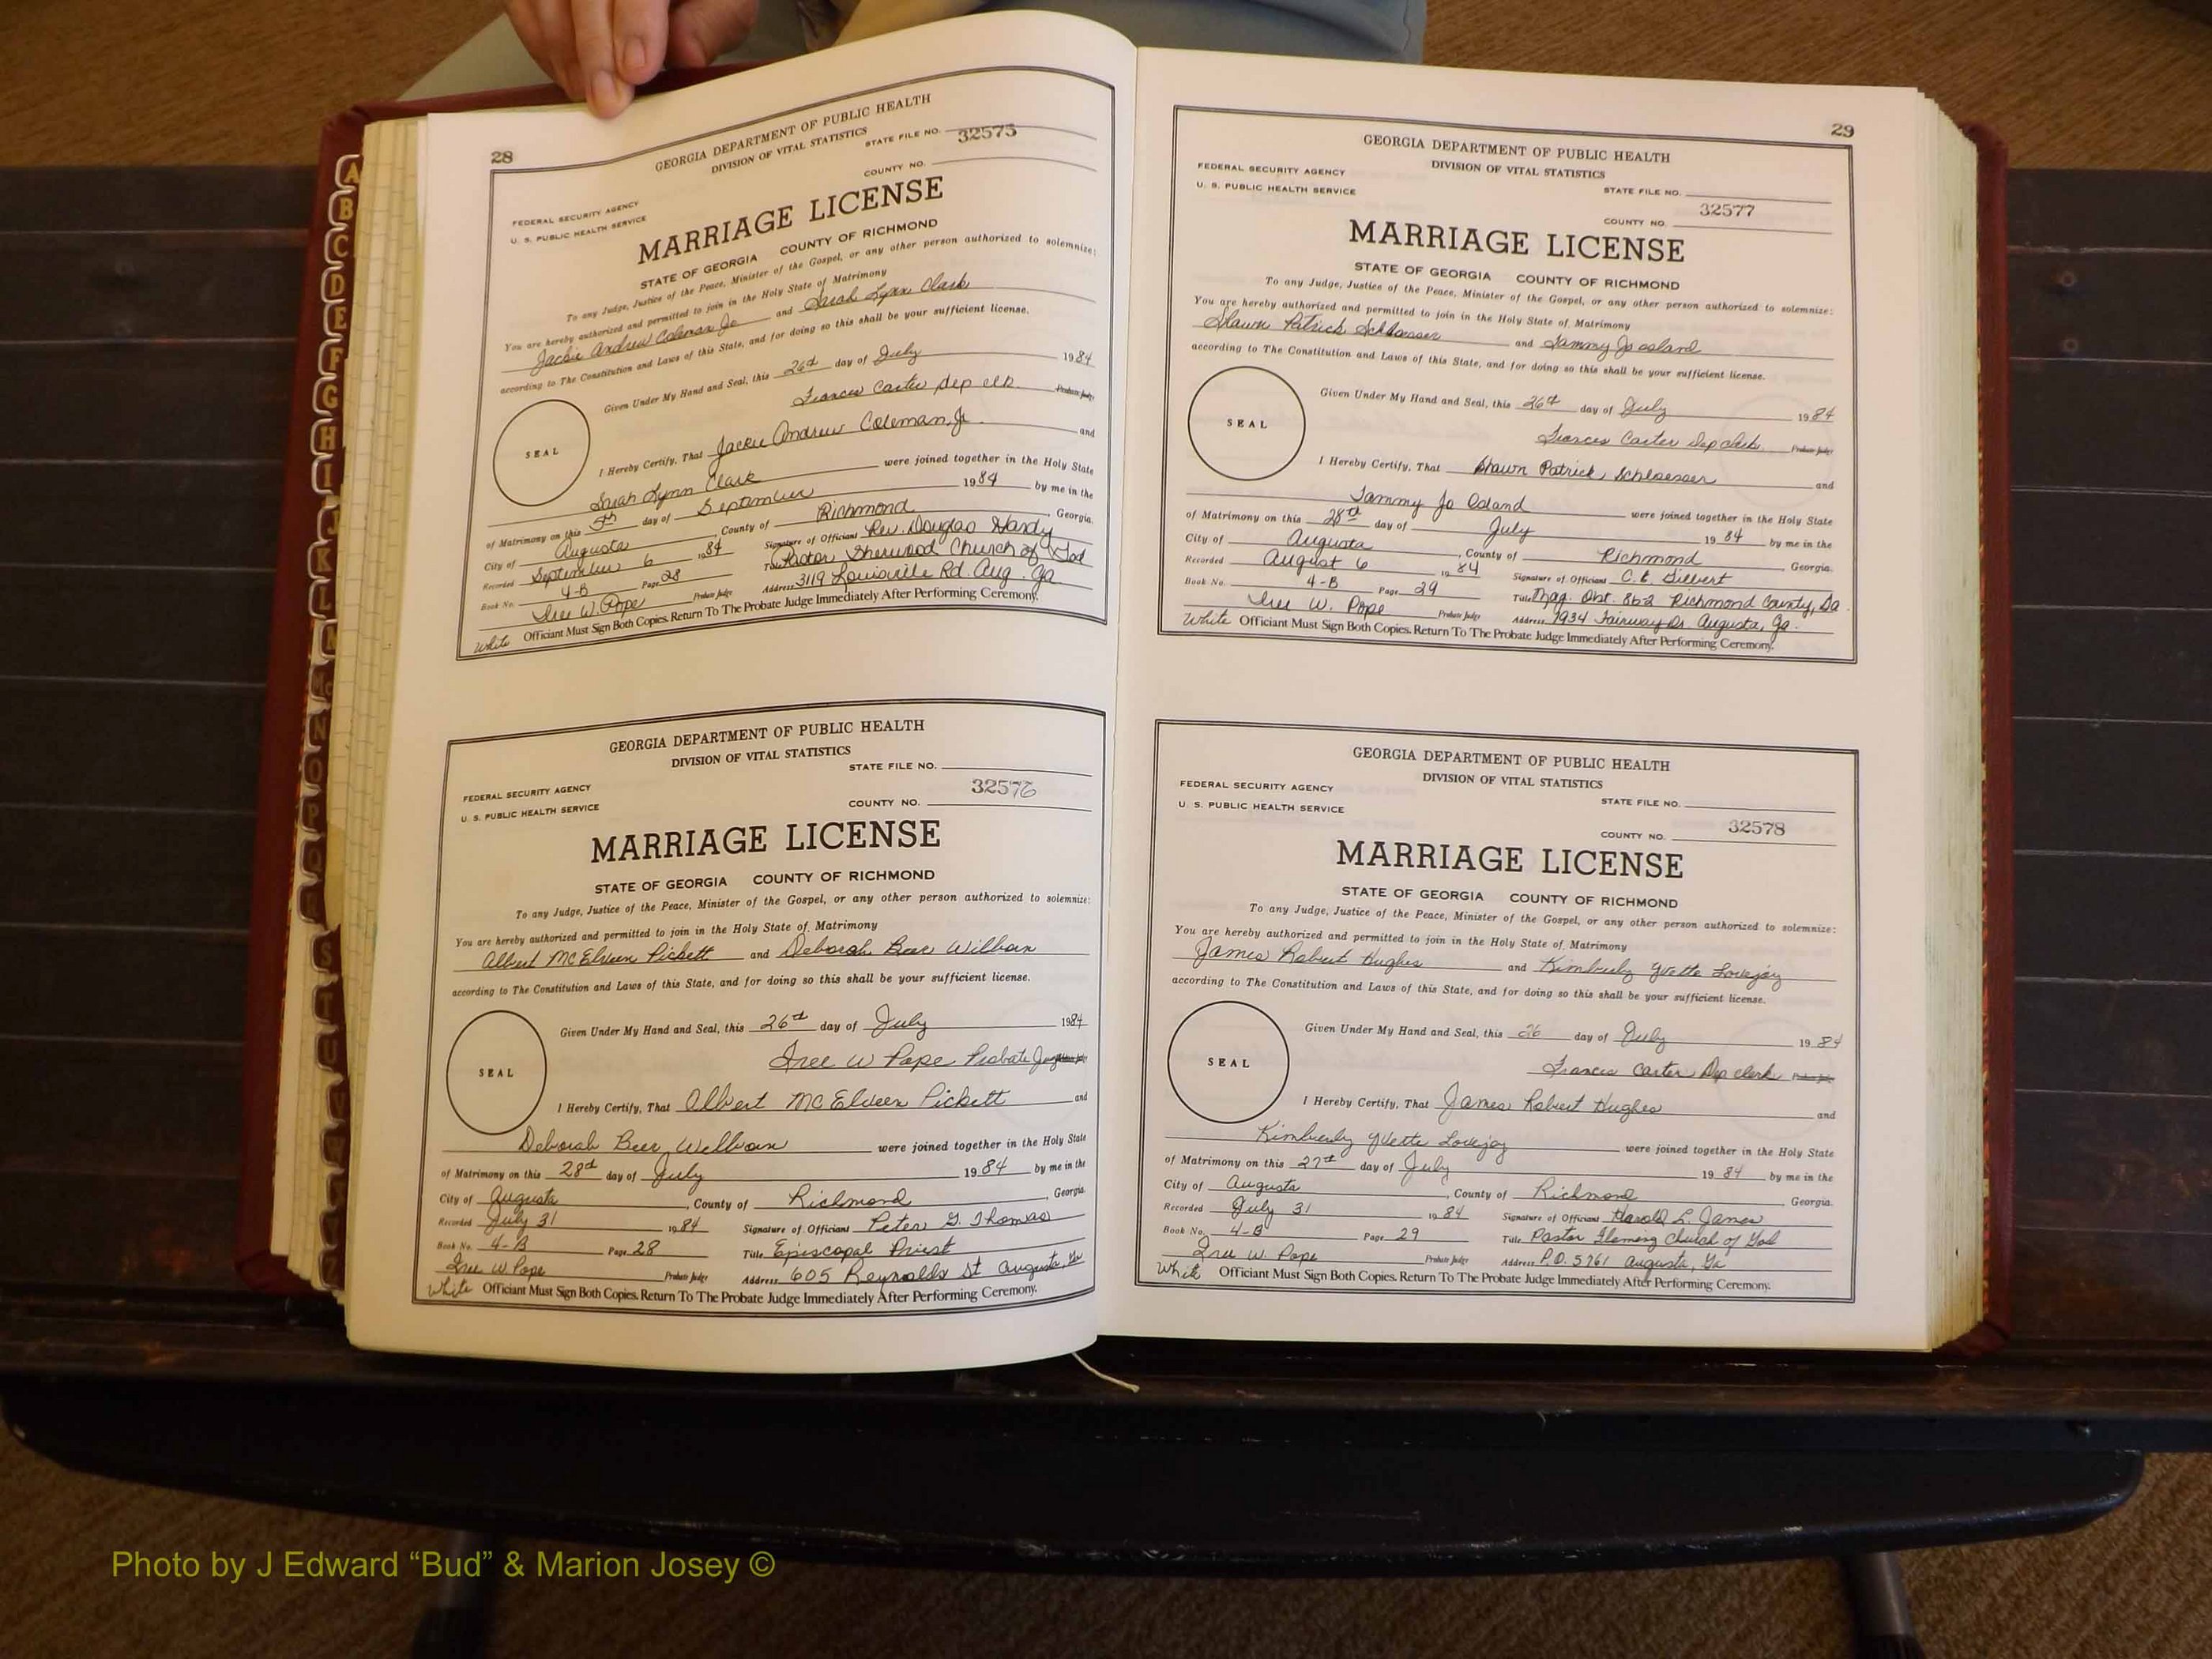 28
GEORGIA DEPARTMENT OF PUBLIC HEALTH
DIVISION OF VITAL STATISTICS
STATE FILE NO. 32575
COUNTY NO.
FEDERAL SECURITY AGENCY
U. S. PUBLIC HEALTH SERVICE
MARRIAGE LICENSE
STATE OF GEORGIA COUNTY OF RICHMOND
To any Judge, Justice of the Peace, Minister of the Gospel, or any other person authorized to solemnize:
You are hereby authorized and permitted to join in the Holy State of Matrimony
Jackie Andrew Coleman Jr and Sarah Lynn Clark
according to The Constitution and Laws of this State, and for doing so this shall be your sufficient license.
Given Under My Hand and Seal, this 26th day of July 1984
Frances Carter Dep clk Probate Judge
SEAL
I Hereby Certify, That Jackie Andrew Coleman, Jr. and
Sarah Lynn Clark were joined together in the Holy State
of Matrimony on this 5th day of September 1984 by me in the
City of Augusta, County of Richmond, Georgia.
Recorded September 6 1984 Signature of Officiant Rev. Douglas Hardy
Book No. 4-B Page 28 Title Pastor Sherwood Church of God
Iree W. Pope Probate Judge Address 3119 Louisville Rd. Aug. Ga
White Officiant Must Sign Both Copies. Return To The Probate Judge Immediately After Performing Ceremony.
GEORGIA DEPARTMENT OF PUBLIC HEALTH
DIVISION OF VITAL STATISTICS
STATE FILE NO.
32576
FEDERAL SECURITY AGENCY
U. S. PUBLIC HEALTH SERVICE
COUNTY NO.
MARRIAGE LICENSE
STATE OF GEORGIA COUNTY OF RICHMOND
To any Judge, Justice of the Peace, Minister of the Gospel, or any other person authorized to solemnize:
You are hereby authorized and permitted to join in the Holy State of Matrimony
Albert McElveen Pickett and Deborah Beer
according to The Constitution and Laws of this State, and for doing so this shall be your sufficient license.
Given Under My Hand and Seal, this 26th day of July 1984
Iree W Pope Probate Judge
SEAL
I Hereby Certify, That Albert McElveen Pickett and
Deborah Beer were joined together in the Holy State
of Matrimony on this 28th day of July 1984 by me in the
City of Augusta, County of Richmond, Georgia
Recorded July 31 1984 Signature of Officiant Peter G. Thomas
Book No. 4-B Page 28 Title Episcopal Priest
Iree W. Pope Probate Judge Address 605 Reynolds St Augusta, Ga
White Officiant Must Sign Both Copies. Return To The Probate Judge Immediately After Performing Ceremony.
29
GEORGIA DEPARTMENT OF PUBLIC HEALTH
DIVISION OF VITAL STATISTICS
FEDERAL SECURITY AGENCY
U. S. PUBLIC HEALTH SERVICE
STATE FILE NO.
32577
COUNTY NO.
MARRIAGE LICENSE
STATE OF GEORGIA COUNTY OF RICHMOND
To any Judge, Justice of the Peace, Minister of the Gospel, or any other person authorized to solemnize:
You are hereby authorized and permitted to join in the Holy State of Matrimony
Shawn Patrick Schloesser and Tammy Jo Osland
according to The Constitution and Laws of this State, and for doing so this shall be your sufficient license.
Given Under My Hand and Seal, this 26th day of July 1984
Frances Carter Dep clerk Probate Judge
SEAL
I Hereby Certify, That Shawn Patrick Schloesser and
Tammy Jo Osland were joined together in the Holy State
of Matrimony on this 28th day of July 1984 by me in the
City of Augusta, County of Richmond, Georgia.
Recorded August 6 1984 Signature of Officiant C.E. Gilbert
Book No. 4-B Page 29 Title Mag. Dist. 86-2 Richmond County, Ga.
Iree W. Pope Probate Judge Address 1934 Fairway Dr. Augusta, Ga.
White Officiant Must Sign Both Copies. Return To The Probate Judge Immediately After Performing Ceremony.
GEORGIA DEPARTMENT OF PUBLIC HEALTH
DIVISION OF VITAL STATISTICS
FEDERAL SECURITY AGENCY
U. S. PUBLIC HEALTH SERVICE
STATE FILE NO.
32578
COUNTY NO.
MARRIAGE LICENSE
STATE OF GEORGIA COUNTY OF RICHMOND
To any Judge, Justice of the Peace, Minister of the Gospel, or any other person authorized to solemnize:
You are hereby authorized and permitted to join in the Holy State of Matrimony
James Robert Hughes and Kimberly Yvette Lovejoy
according to The Constitution and Laws of this State, and for doing so this shall be your sufficient license.
Given Under My Hand and Seal, this 26 day of July 1984
Frances Carter Dep clerk
SEAL
I Hereby Certify, That James Robert Hughes and
Kimberly Yvette Lovejoy were joined together in the Holy State
of Matrimony on this 27th day of July 1984 by me in the
City of Augusta, County of Richmond, Georgia.
Recorded July 31 1984 Signature of Officiant Harold L. James
Book No. 4-B Page 29 Title Pastor Fleming Church of God
Iree W. Pope Probate Judge Address P.O. 5761 Augusta, Ga
White Officiant Must Sign Both Copies. Return To The Probate Judge Immediately After Performing Ceremony.
Photo by J Edward “Bud” & Marion Josey ©